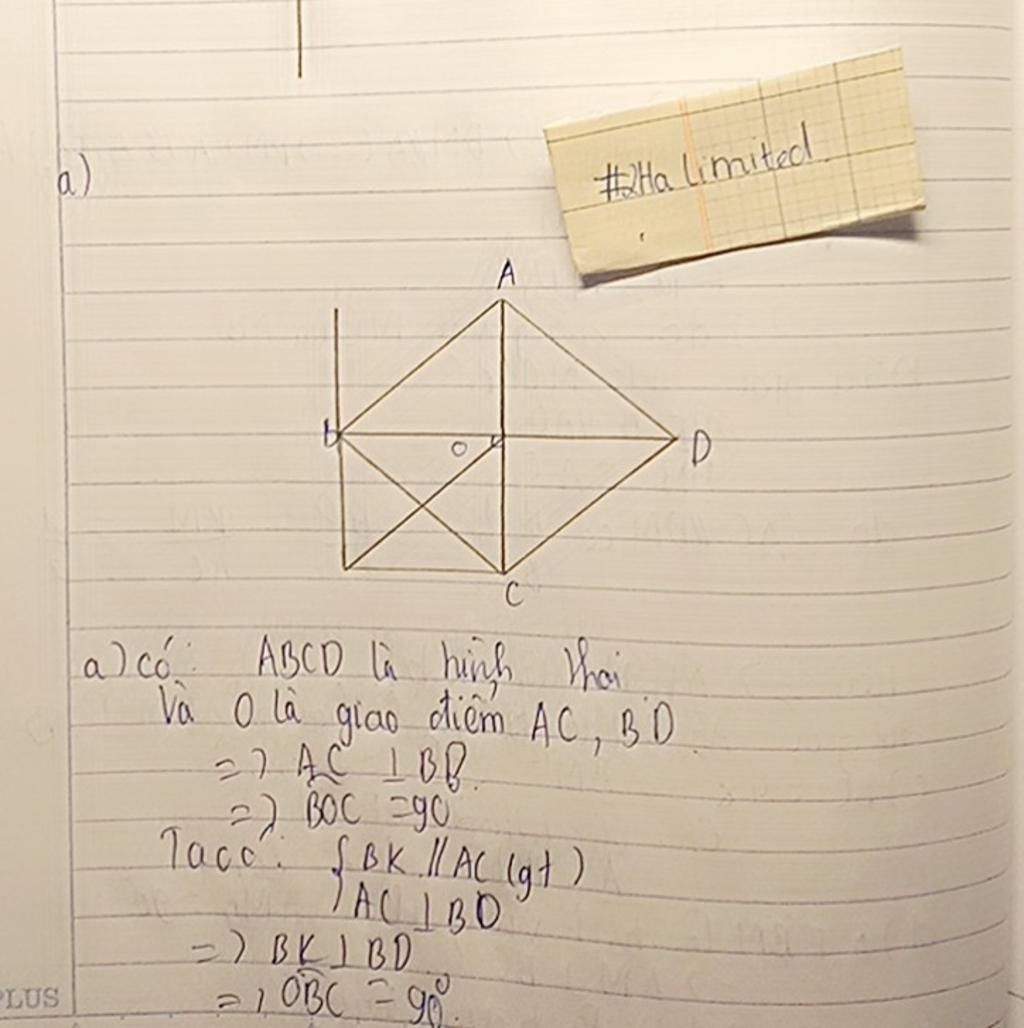 #2Ha limited
a)
A
B
O
D
C
a) có: ABCD là hình thoi
Và O là giao điểm AC, BD
=> AC ⊥ BD
=> BOC = 90
Ta có: { BK // AC (gt)
AC ⊥ BD
=> BK ⊥ BD
=> OBC = 90°
PLUS